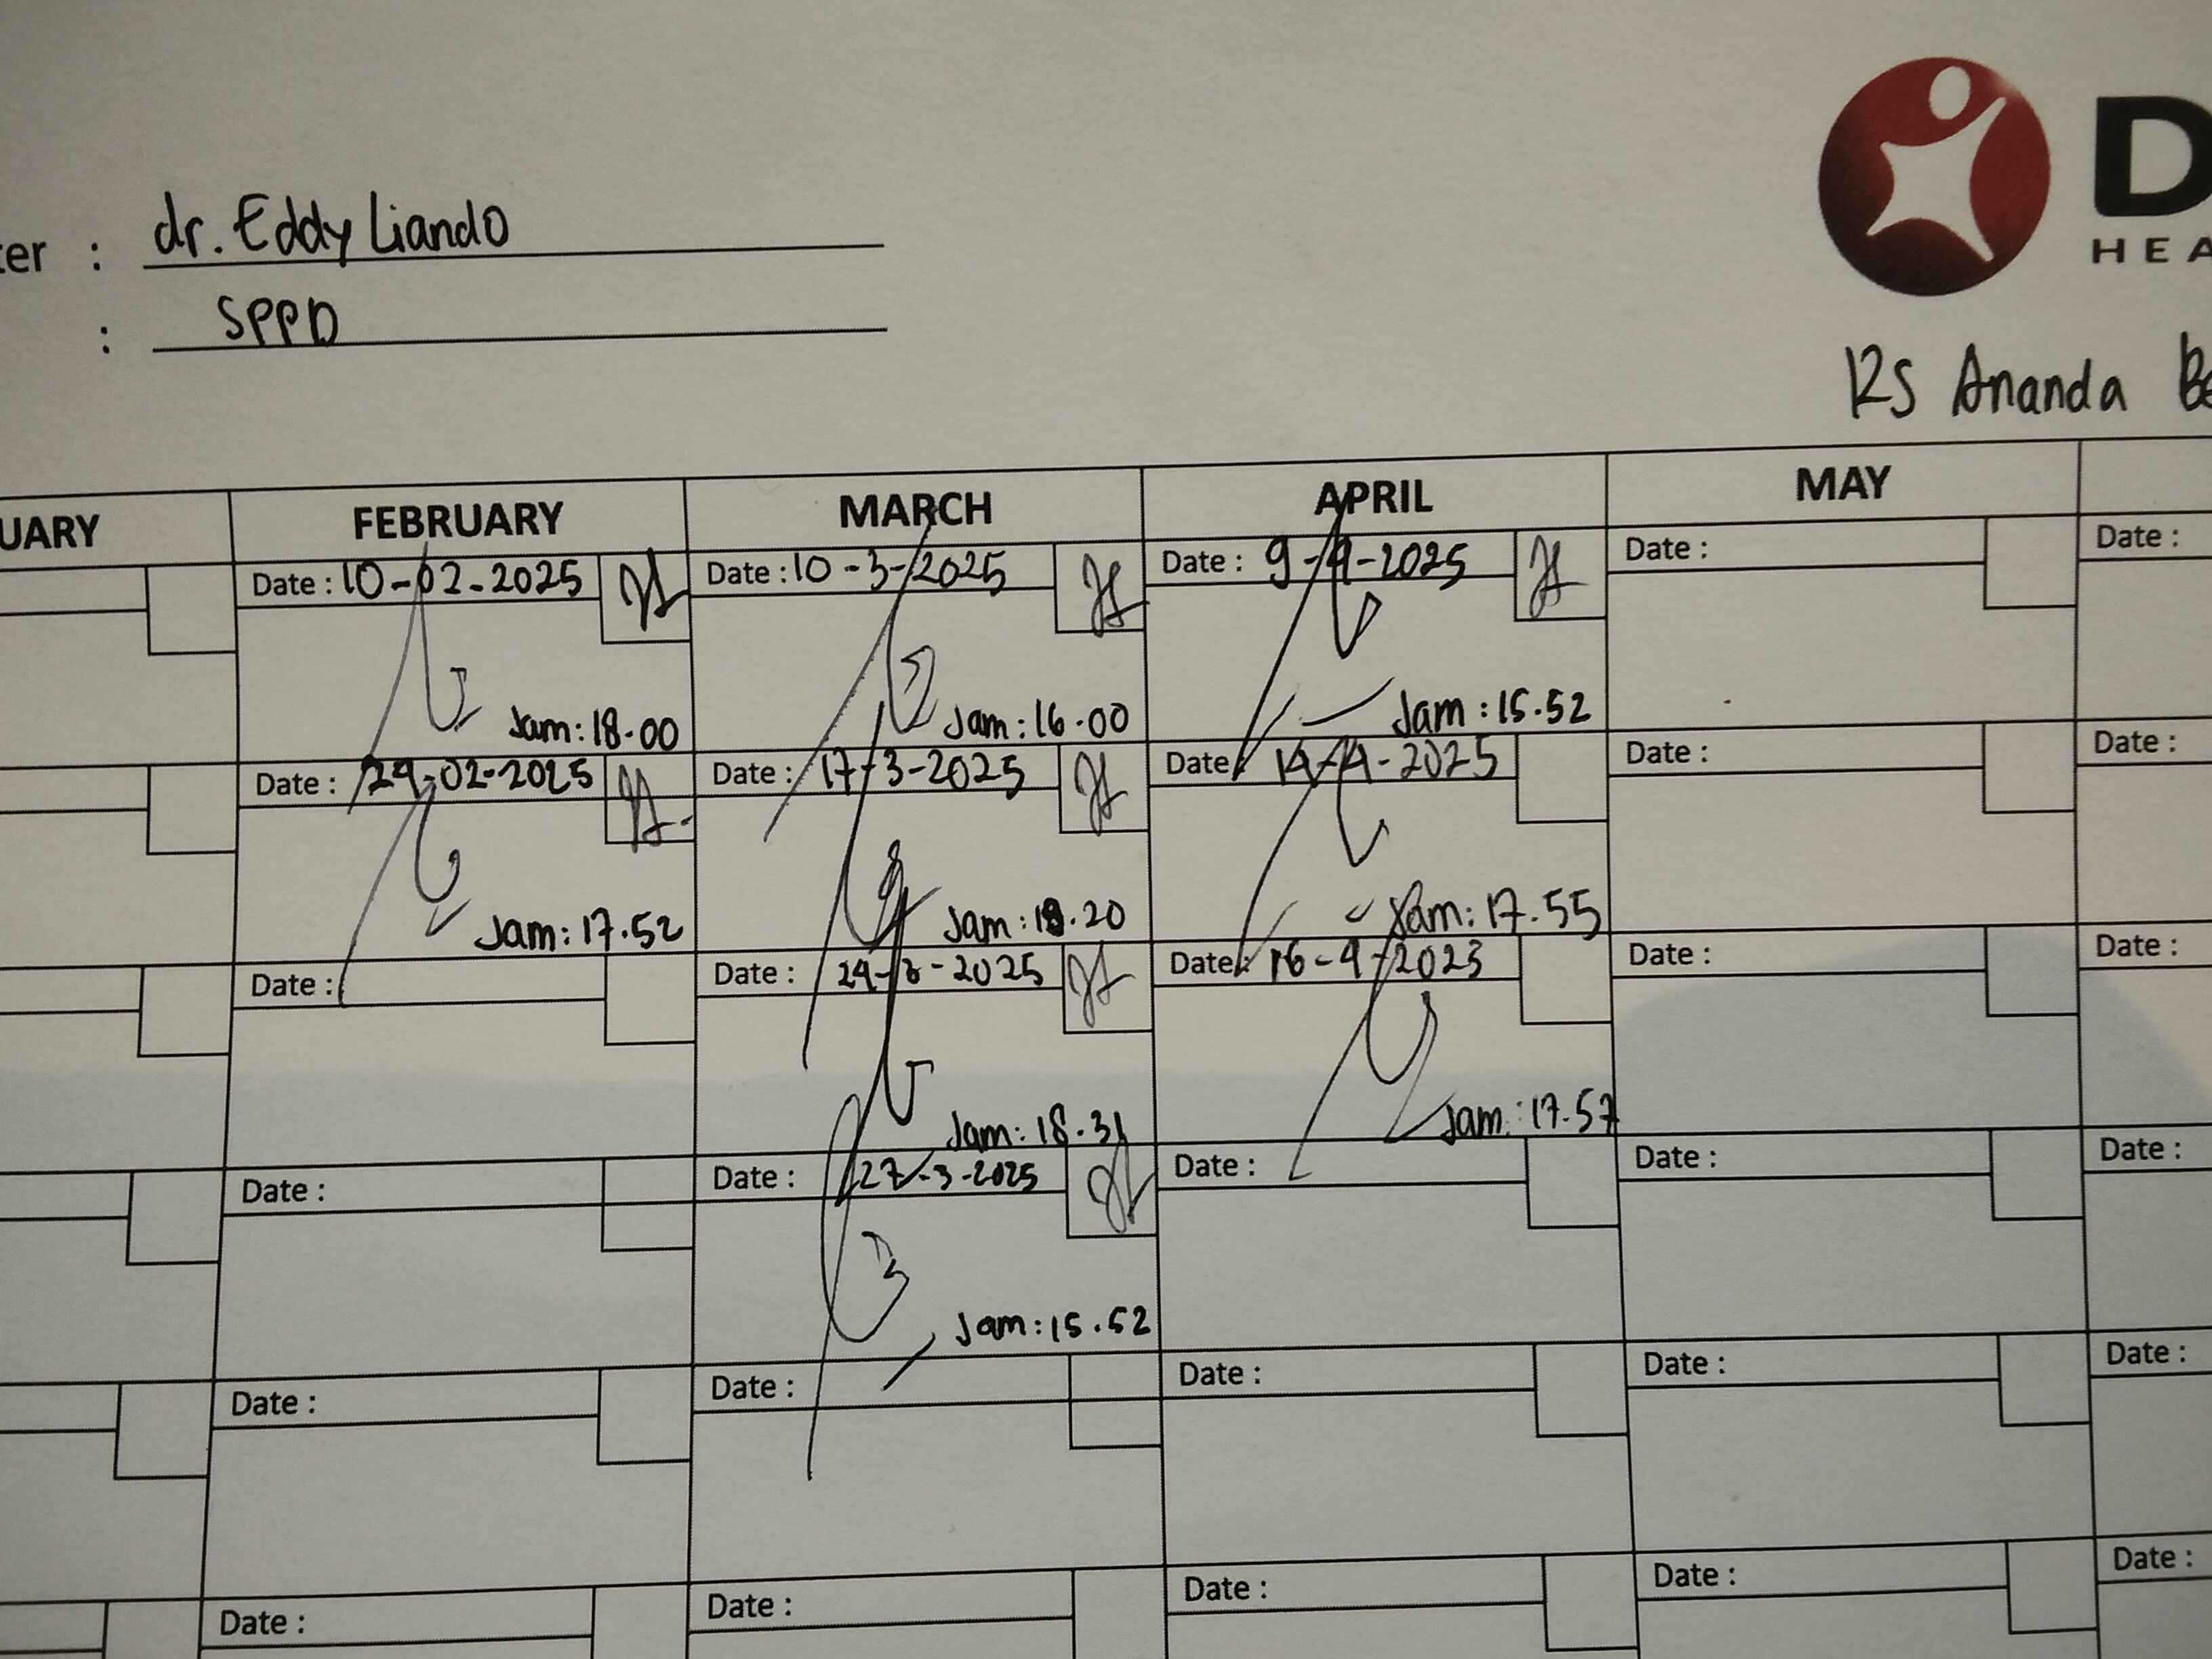 ter : dr. Eddy Liando
: SPPD
D
HEA
RS Ananda Be
UARY FEBRUARY MARCH APRIL MAY
Date : 10-02-2025 Date : 10-3-2025 Date : 9-4-2025 Date : Date :
Jam: 18.00 Jam: 16.00 Jam: 15.52
Date : 24-02-2025 Date : 17-3-2025 Date : 14-4-2025 Date : Date :
Jam: 17.52 Jam: 18.20 Jam: 17.55
Date : Date : 24-3-2025 Date : 16-4-2025 Date : Date :
Jam: 18.31 Jam: 17.57
Date : Date : 27-3-2025 Date : Date : Date :
Jam: 15.52
Date : Date : Date : Date : Date :
Date : Date : Date : Date : Date :